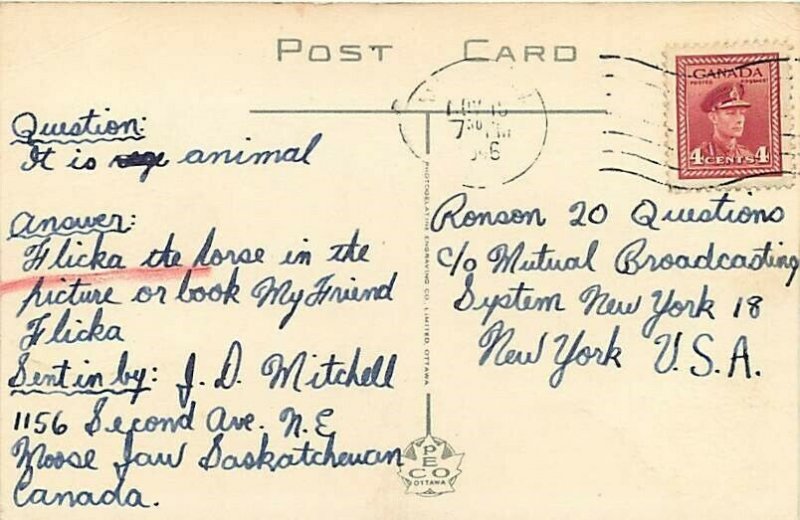 POST CARD
Question:
It is animal
Answer:
Flicka the horse in the
picture or book My Friend
Flicka
Sent in by: J. D. Mitchell
1156 Second Ave. N.E
Moose Jaw Saskatchewan
Canada.
PHOTOGELATINE ENGRAVING CO., LIMITED, OTTAWA
PECO
OTTAWA
7 30 PM
CANADA
POSTES POSTAGE
4 CENTS 4
Ronson 20 Questions
c/o Mutual Broadcasting
System New York 18
New York U.S.A.